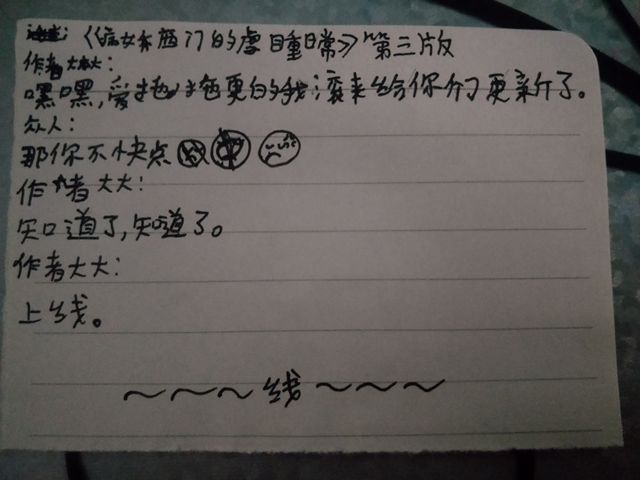 《病女东西们的虐瞳日常》第三版
作者大大:
嘿嘿,爱拖拖更的我滚来给你们更新了。
众人:
那你不快点
作者大大:
知道了,知道了。
作者大大:
上线。
～～～线～～～